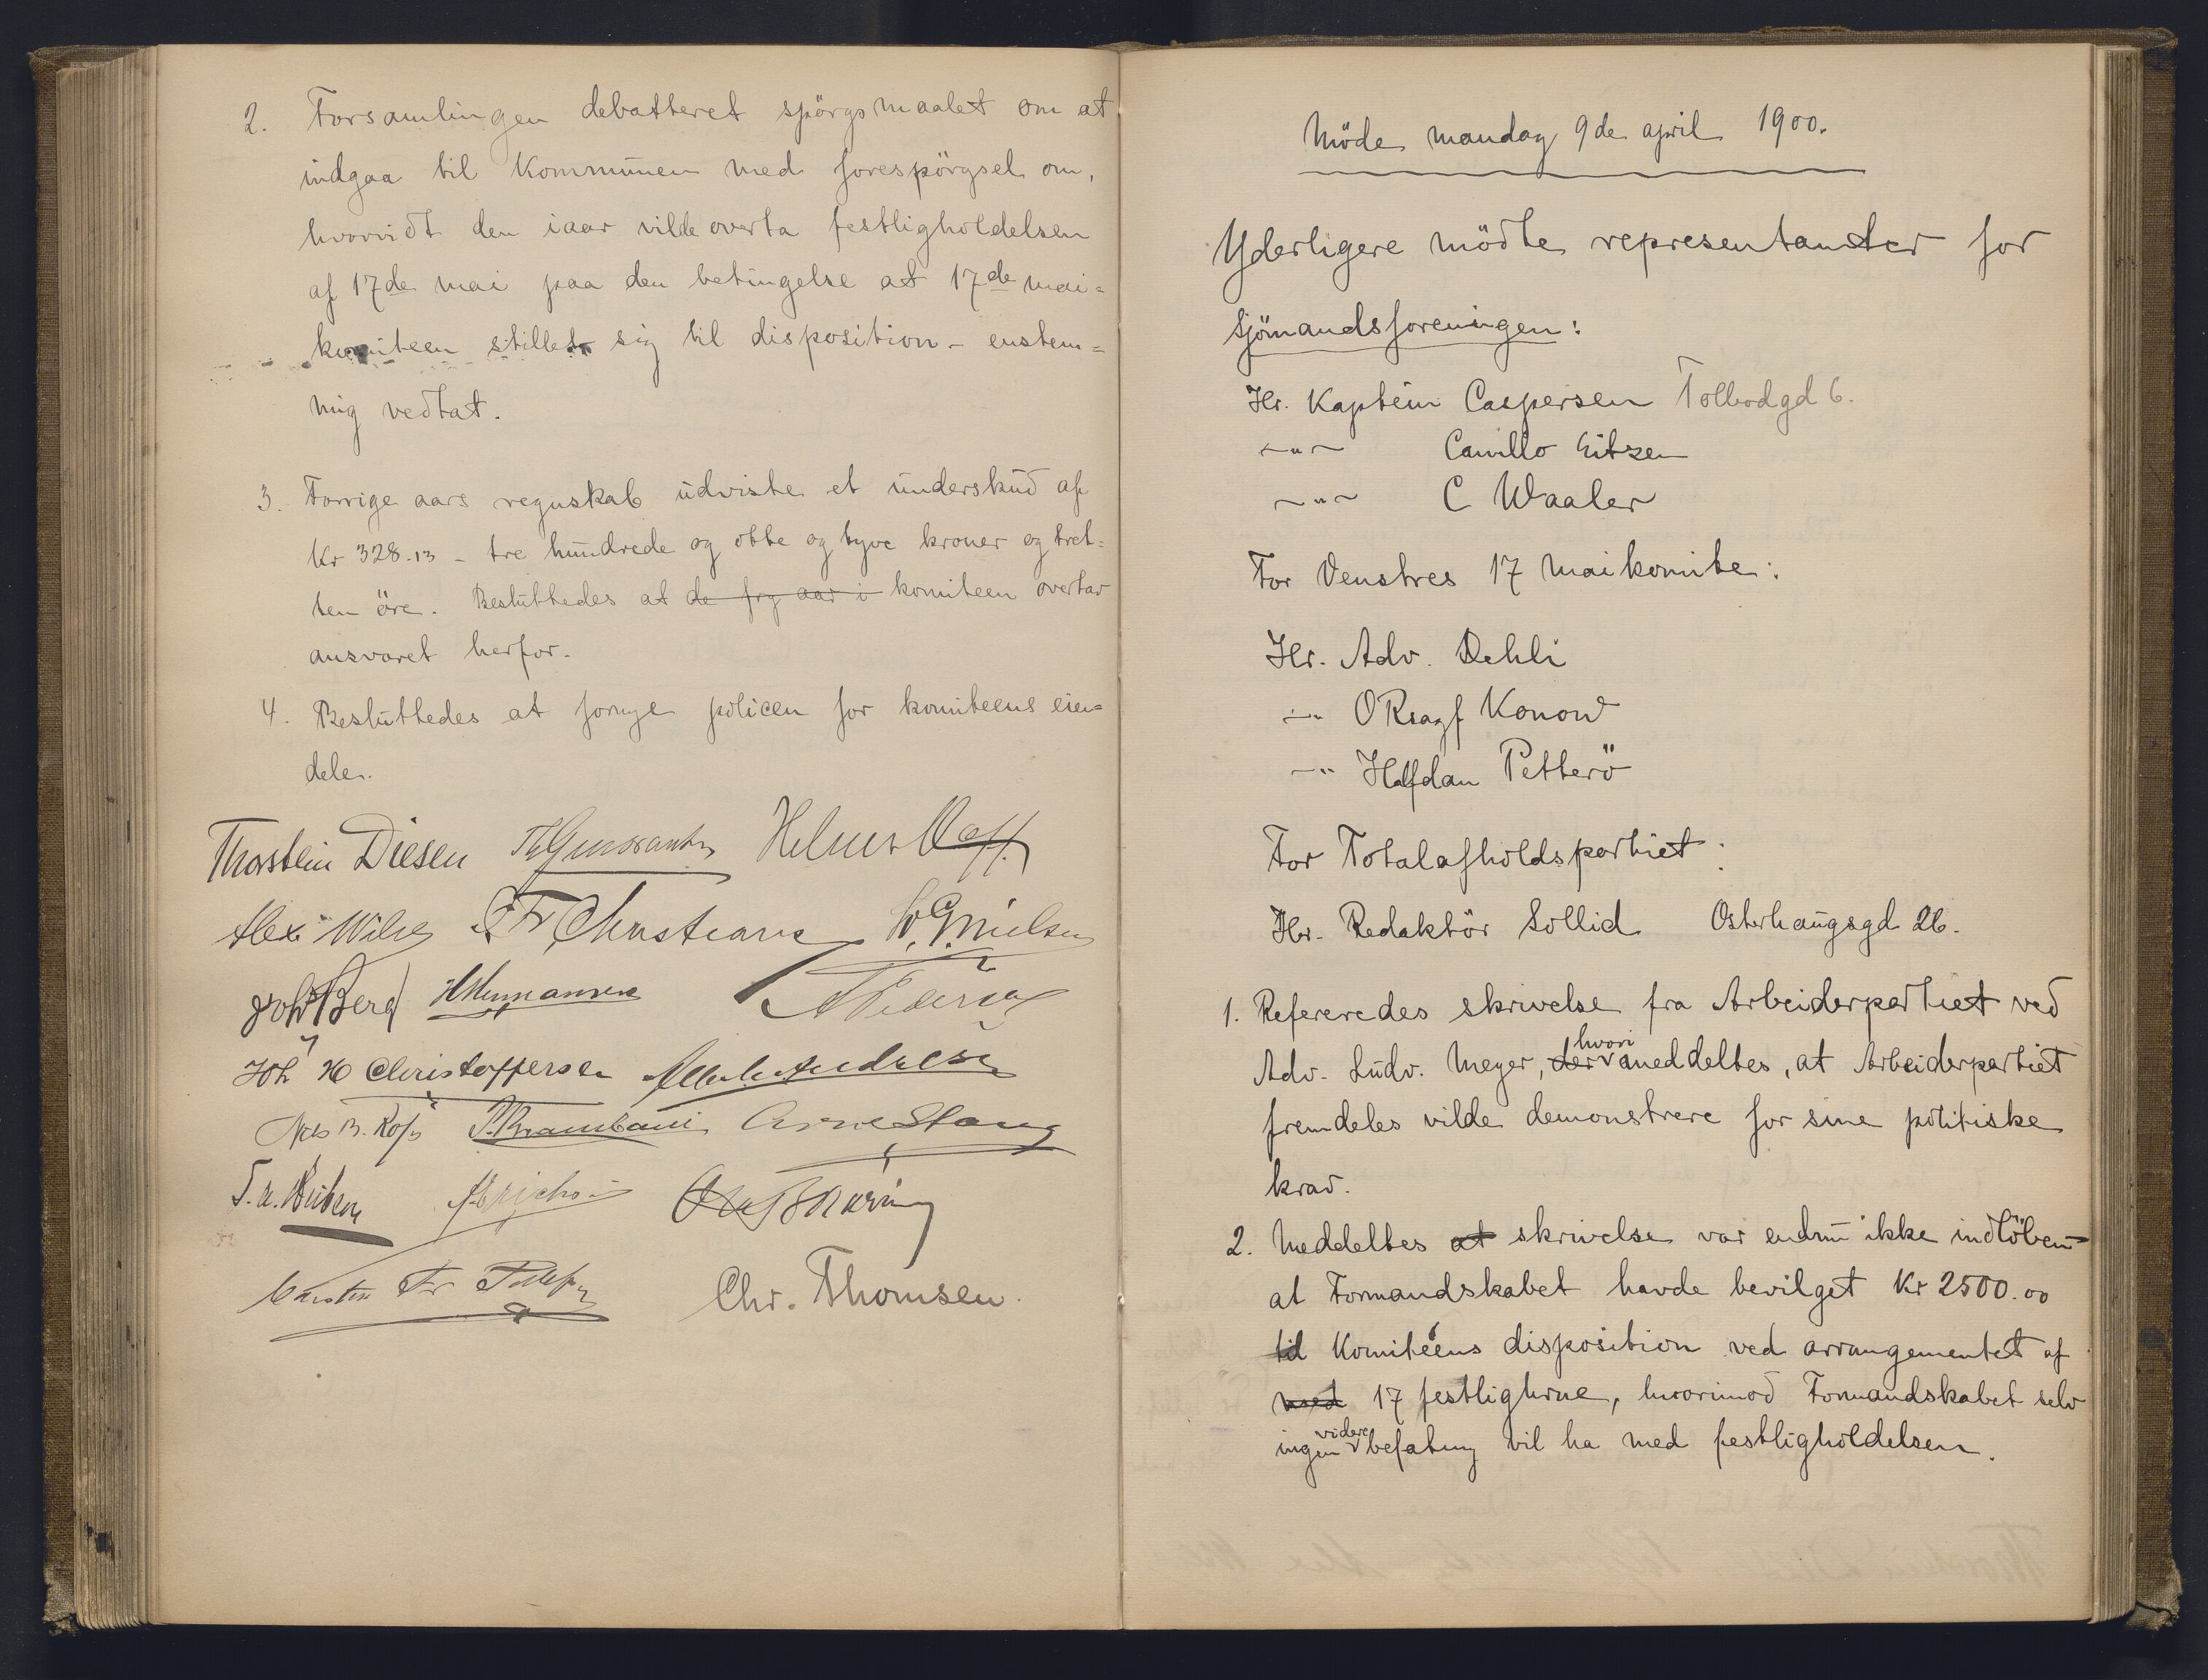 2. Forsamlingen debatteret spörgsmaalet om at
indgaa til Kommunen med forespörgsel om,
hvorvidt den iaar vilde overta festligholdelsen
af 17de mai paa den betingelse at 17de mai=
komiteen stillet sig til disposition - enstem=
mig vedtat.
3. Forrige aars regnskab udviste et underskud af
Kr 328.13 - tre hundrede og otte og tyve kroner og tret=
ten öre. Besluttedes at de frg aar i komiteen overtar
ansvaret herfor.
4. Besluttedes at fornye policen for komiteens eien=
dele.
Thorstein Diesen Helmer
Alex Wilse Fr Christians W. G. Nielsen
Joh Berg H Hermansen A Pedersen
Joh H Christoffersen Andresen
Arne Stang
Carsten Fr Chr. Thomsen.
Möde mandag 9de april 1900.
Yderligere mödte representanter for
Sjömandsforeningen:
Hr. Kaptein Caspersen Tolbodgd 6.
—"— Camillo Eitzen
—"— C Waaler
For Venstres 17 maikomite:
Hr. Adv. Dehli
—" ORsagf Konow
—" Halfdan Petterö
For Totalafholdspartiet:
Hr. Redaktör Sollid Osterhaugsgd 26.
1. Refereredes skrivelse fra Arbeiderpartiet ved
Adv. Ludv. Meyer, der hvori meddeltes, at Arbeiderpartiet
fremdeles vilde demonstrere for sine politiske
krav.
2. Meddeltes at skrivelse var endnu ikke indlöben -
at Formandskabet havde bevilget Kr 2500.00
til Komiteens disposition ved arrangementet af
med 17 festlighrne, hvorimod Formandskabet selv
ingen videre befatning vil ha med festligholdelsen.